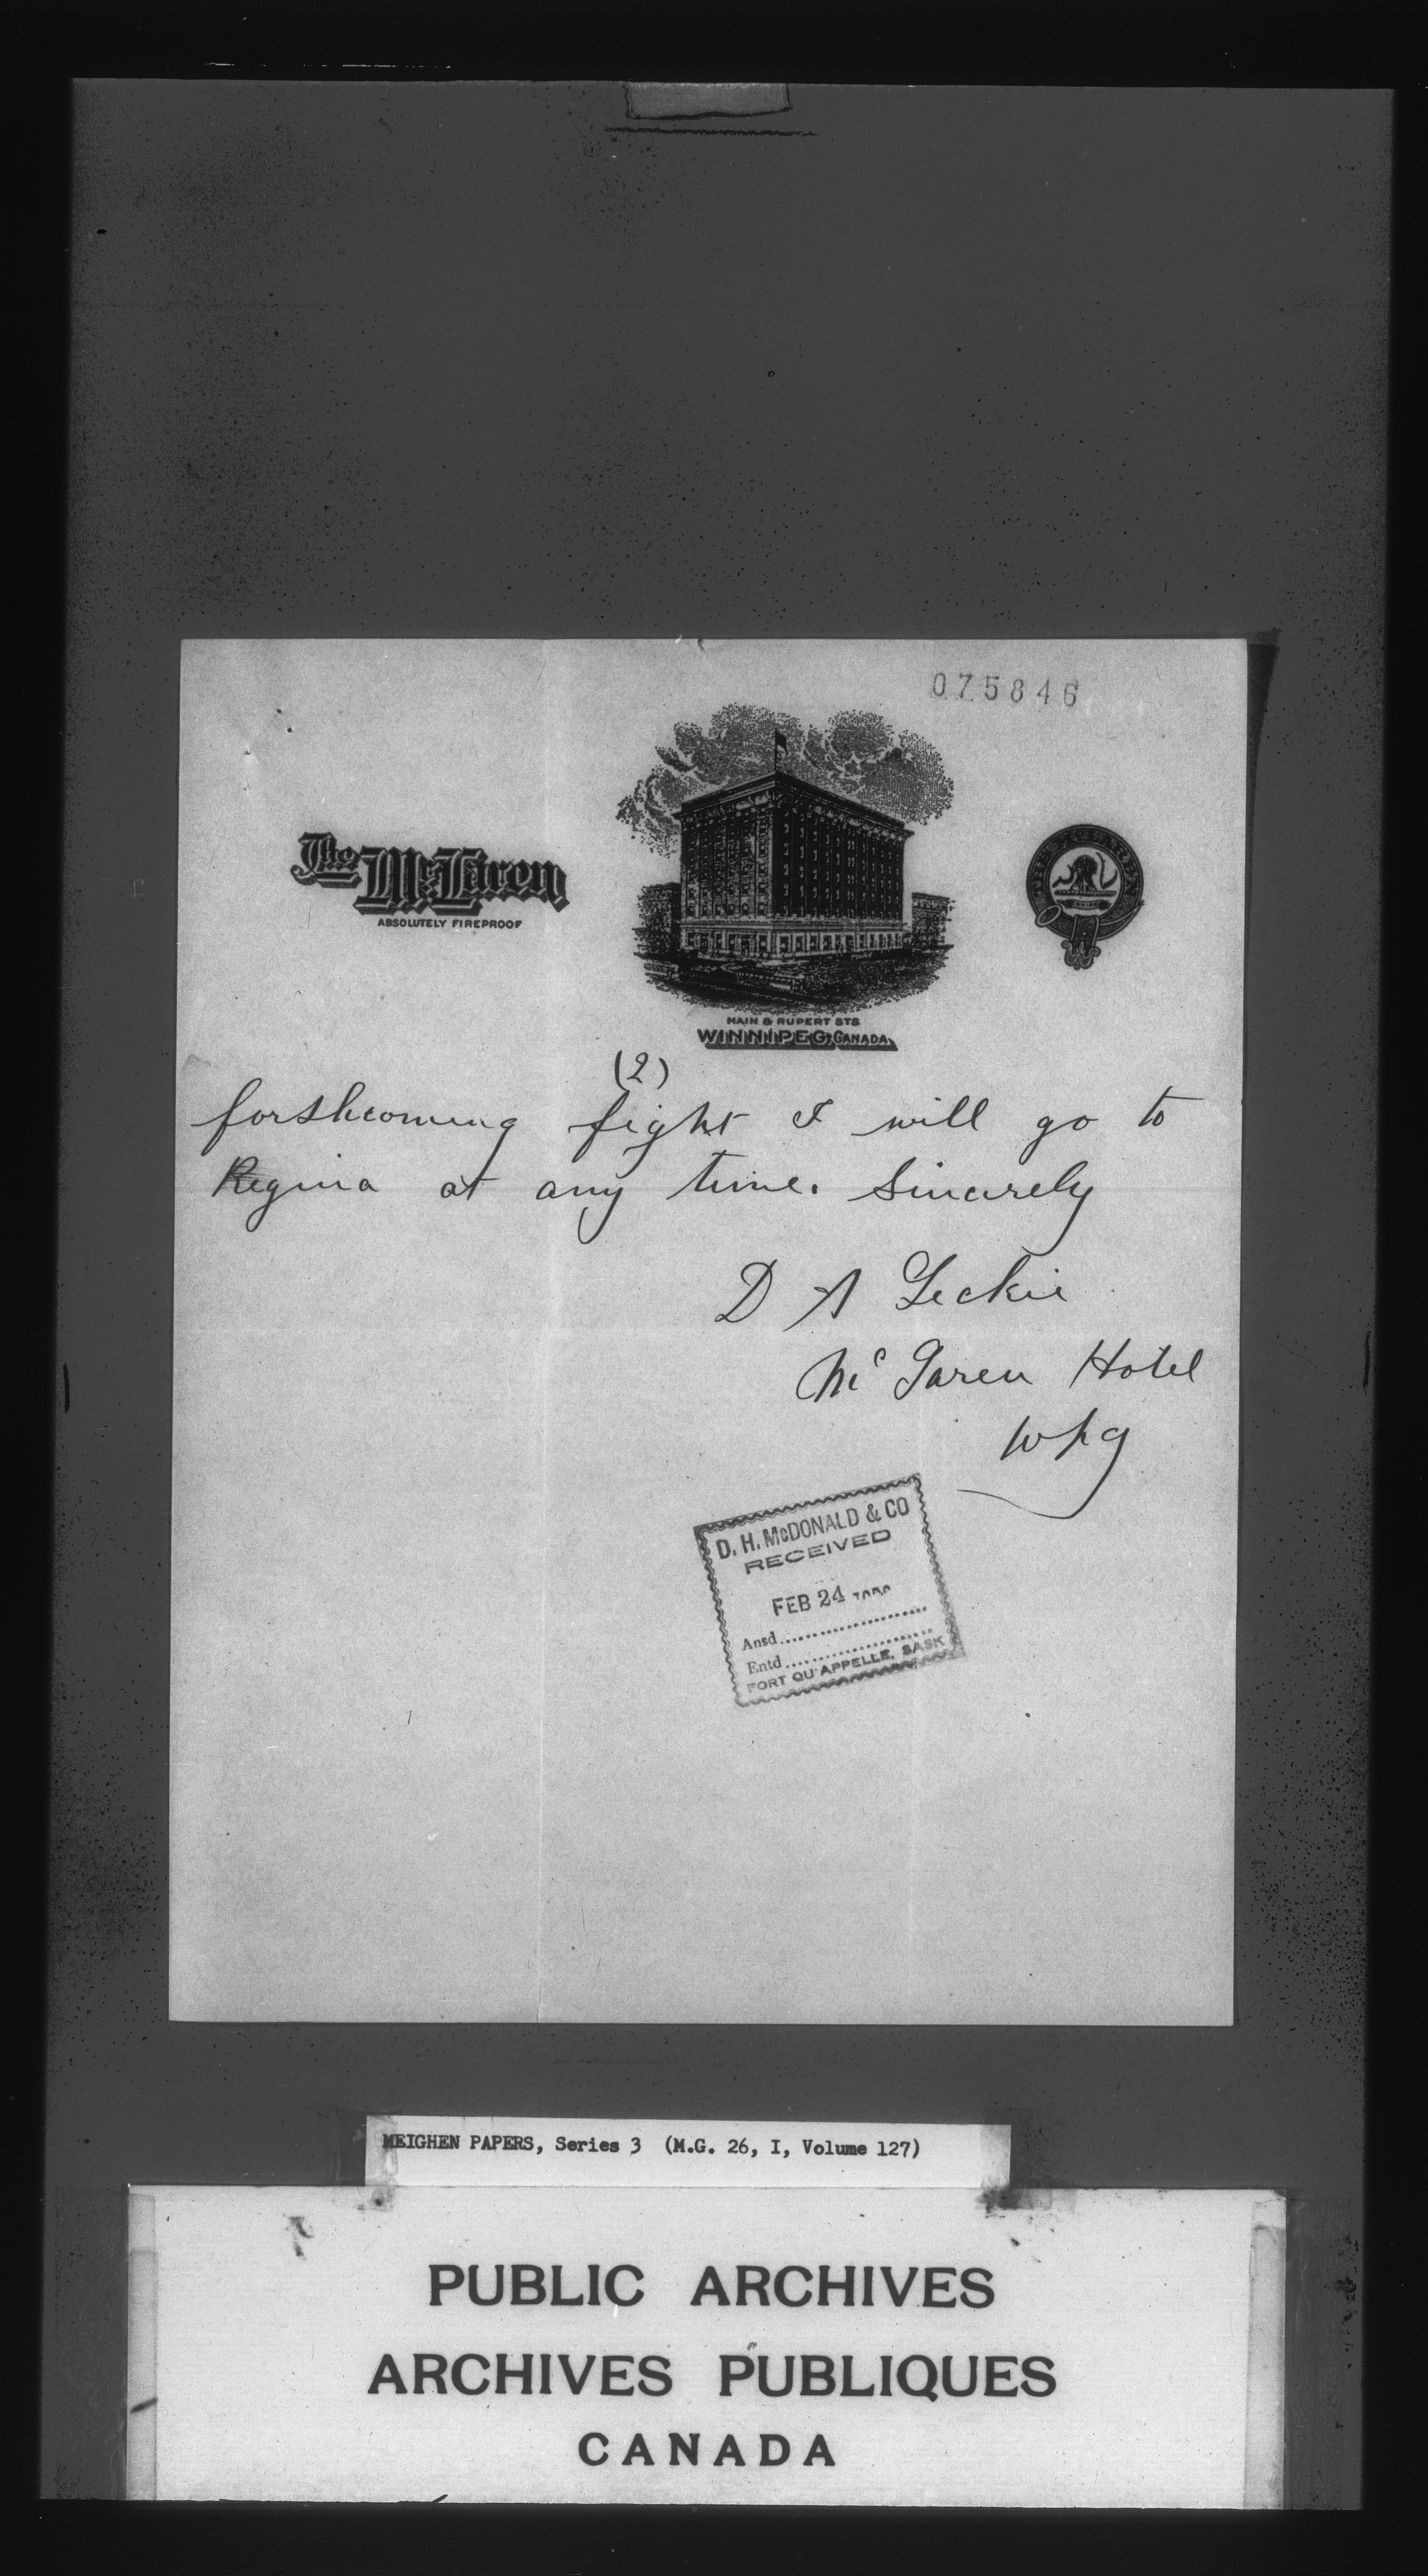 075846
The McLaren
ABSOLUTELY FIREPROOF
MAIN & RUPERT STS
WINNIPEG, CANADA
(2)
forthcoming fight I will go to
Regina at any time. Sincerely
D A Leckie
Mc Laren Hotel
Wpg
D. H. McDONALD & CO
RECEIVED
FEB 24
Ansd
Entd
FORT QU'APPELLE, SASK
MEIGHEN PAPERS, Series 3 (M.G. 26, I, Volume 127)
PUBLIC ARCHIVES
ARCHIVES PUBLIQUES
CANADA